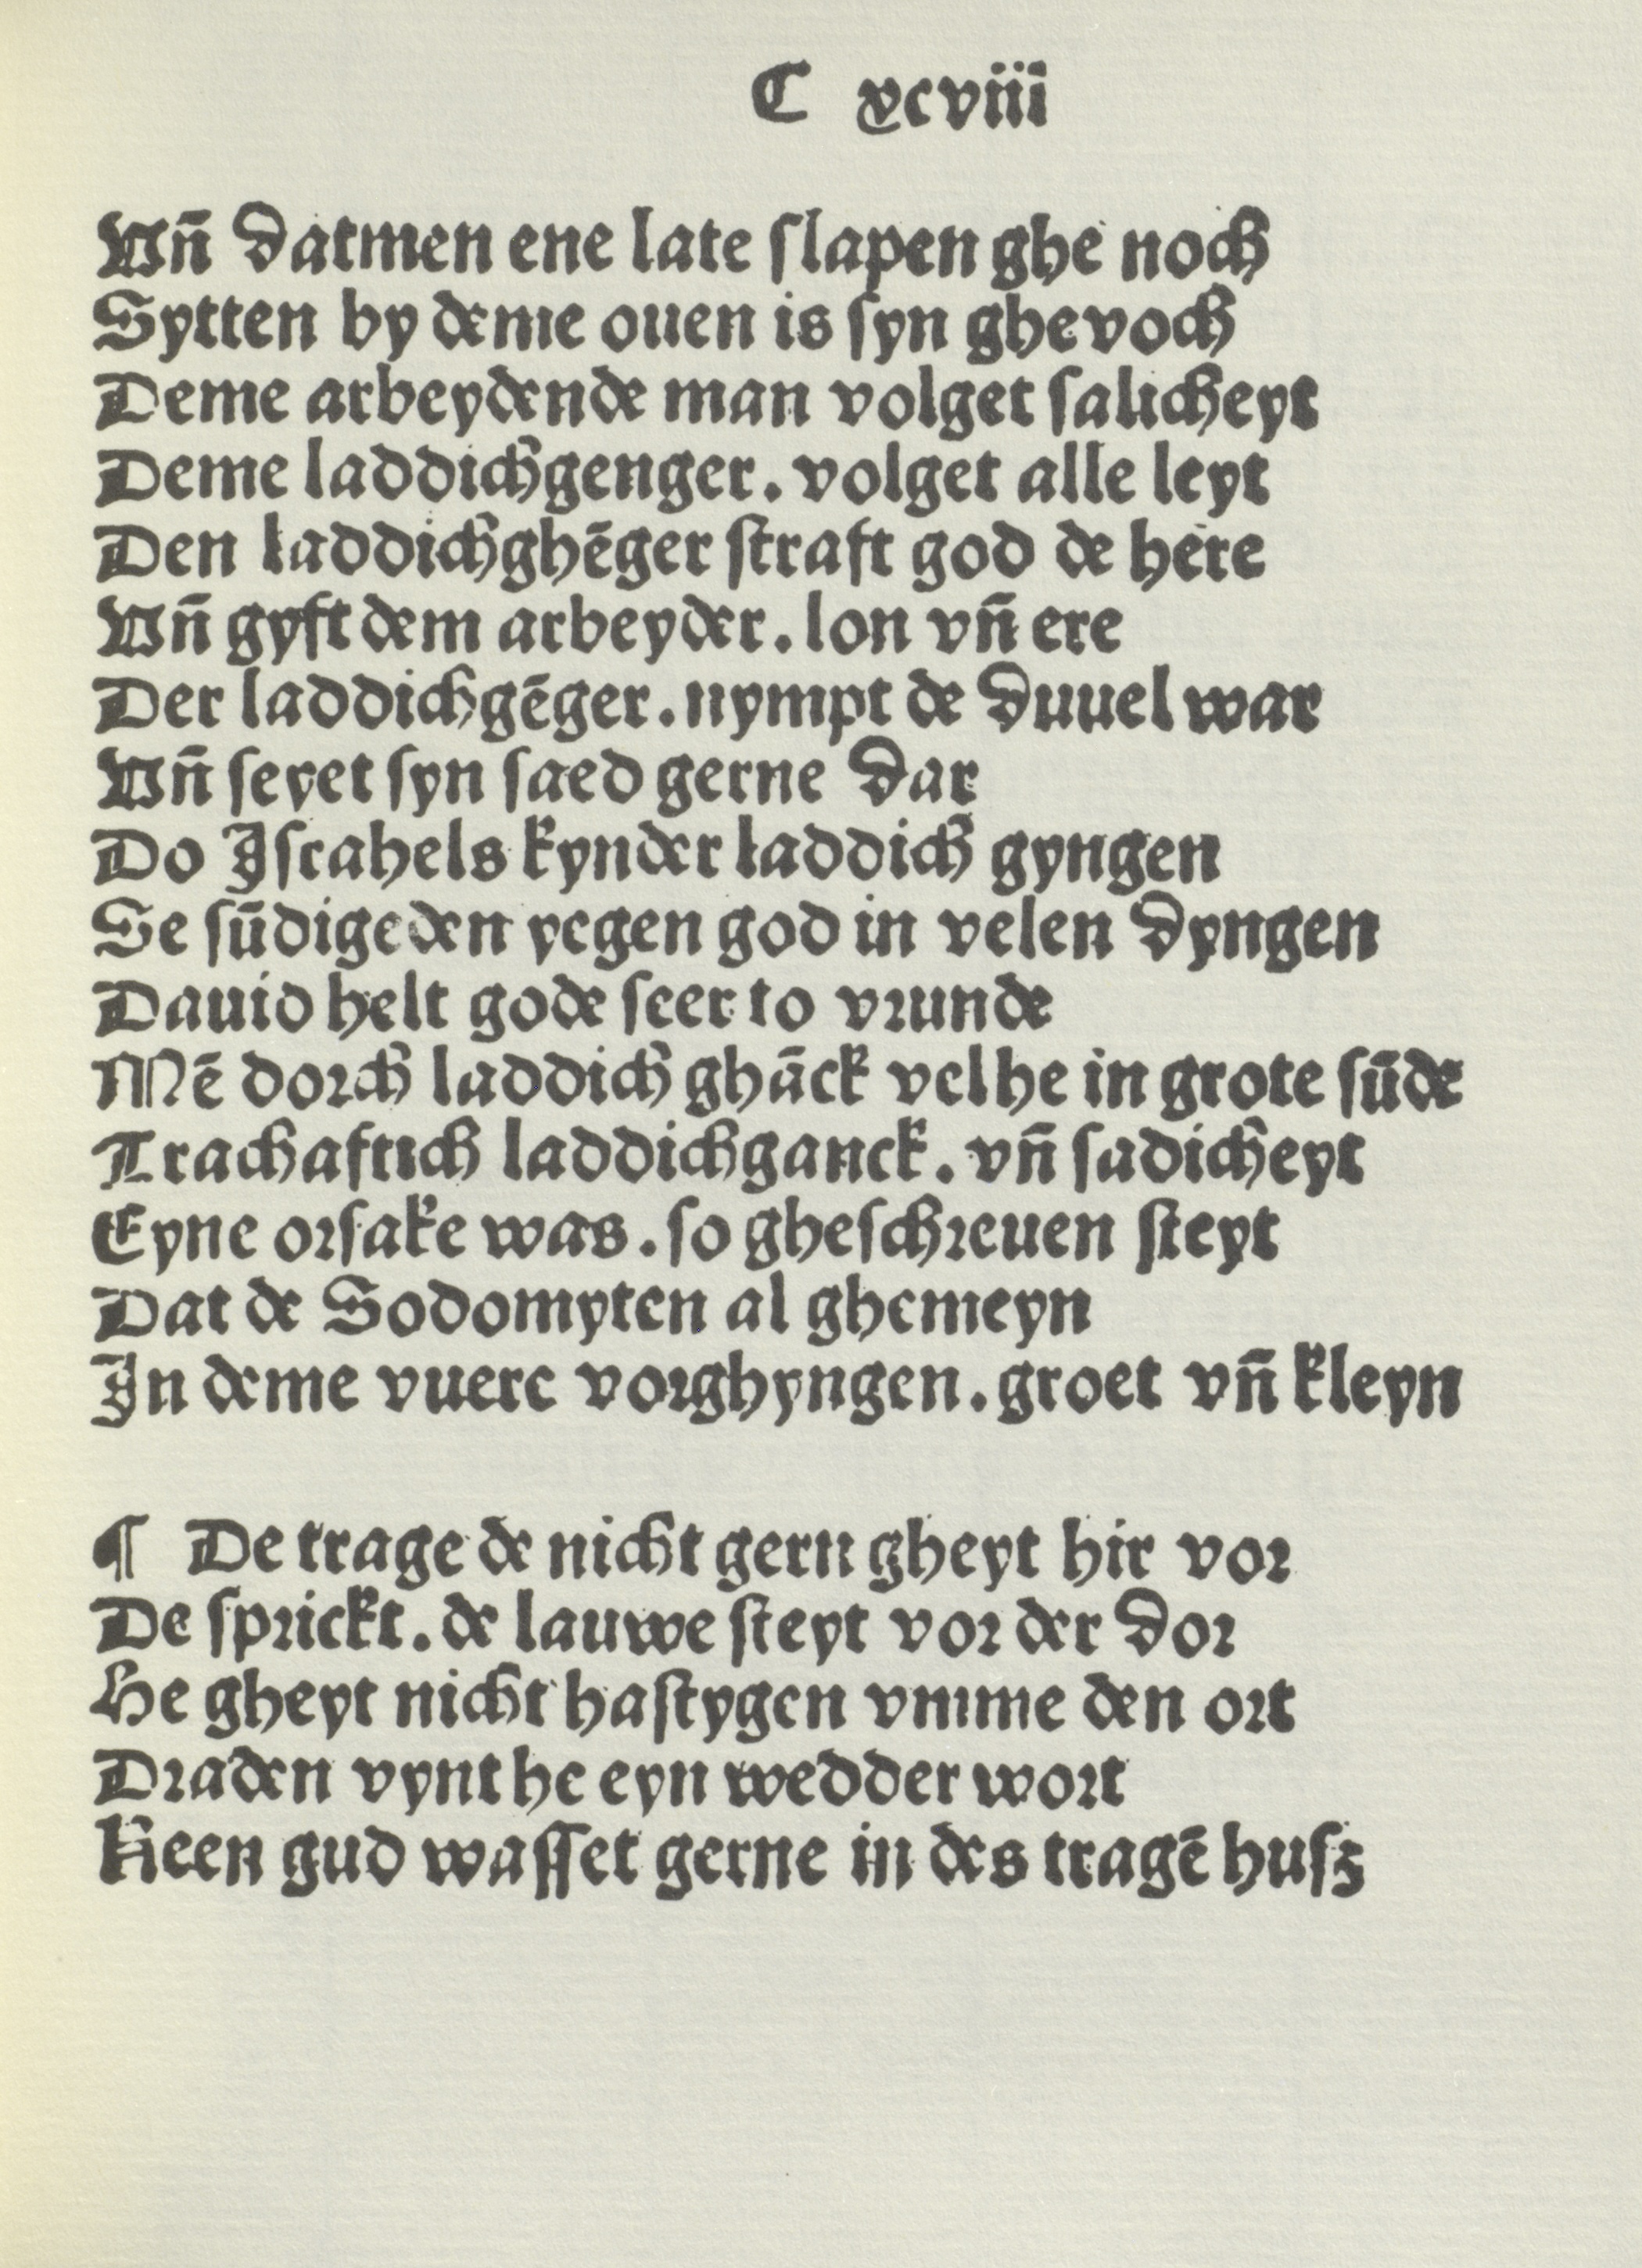 C xcviii
Vñ datmen ene late ſlapen ghe noch
Sytten by deme ouen is ſyn ghevoch
Deme arbeydende man volget ſalicheyt
Deme laddichgenger. volget alle leyt
Den laddichghēger ſtraft god de here
Vñ gyft dem arbeyder. lon vñ ere
Der laddichgēger. nympt de duuel war
Vñ ſeyet ſyn ſaed gerne dar
Do Jſrahels kynder laddich gyngen
Se ſūdigeden yegen god in velen dyngen
Dauid helt gode ſeer to vrunde
Mē dorch laddich ghāck vel he in grote ſūde
Trachaftich laddichganck. vñ ſadicheyt
Eyne orſake was. ſo gheſchreuen ſteyt
Dat de Sodomyten al ghemeyn
Jn deme vuere vorghyngen. groet vñ kleyn
¶ De trage de nicht gern gheyt hir vor
De ſprickt. de lauwe ſteyt vor der dor
He gheyt nicht haſtygen vmme den ort
Draden vynt he eyn wedder wort
Keen gud waſſet gerne in des tragē huſz